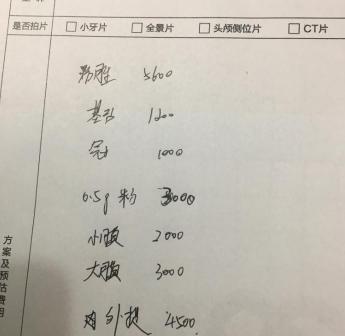 是否拍片 □小牙片 □全景片 □头颅侧位片 □CT片
5600
基台 1200
冠 1000
0.5g 粉 3000
小膜 2000
大膜 3000
外提 4500
方案及预估费用